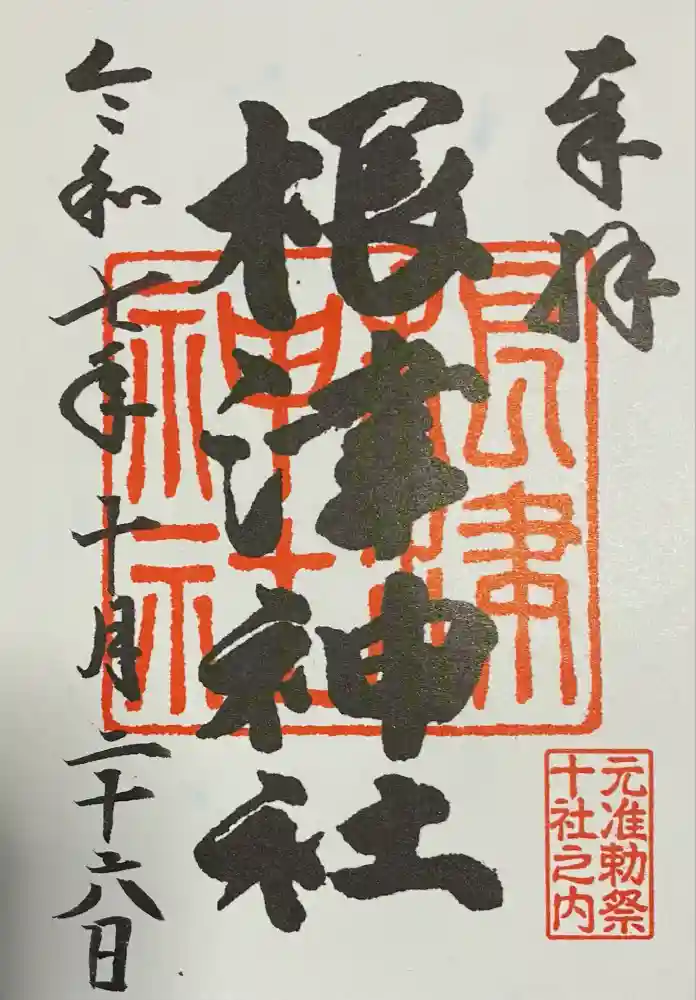 奉拝
根津神社
令和七年十月二十六日
根津
神社
元准勅祭
十社之内